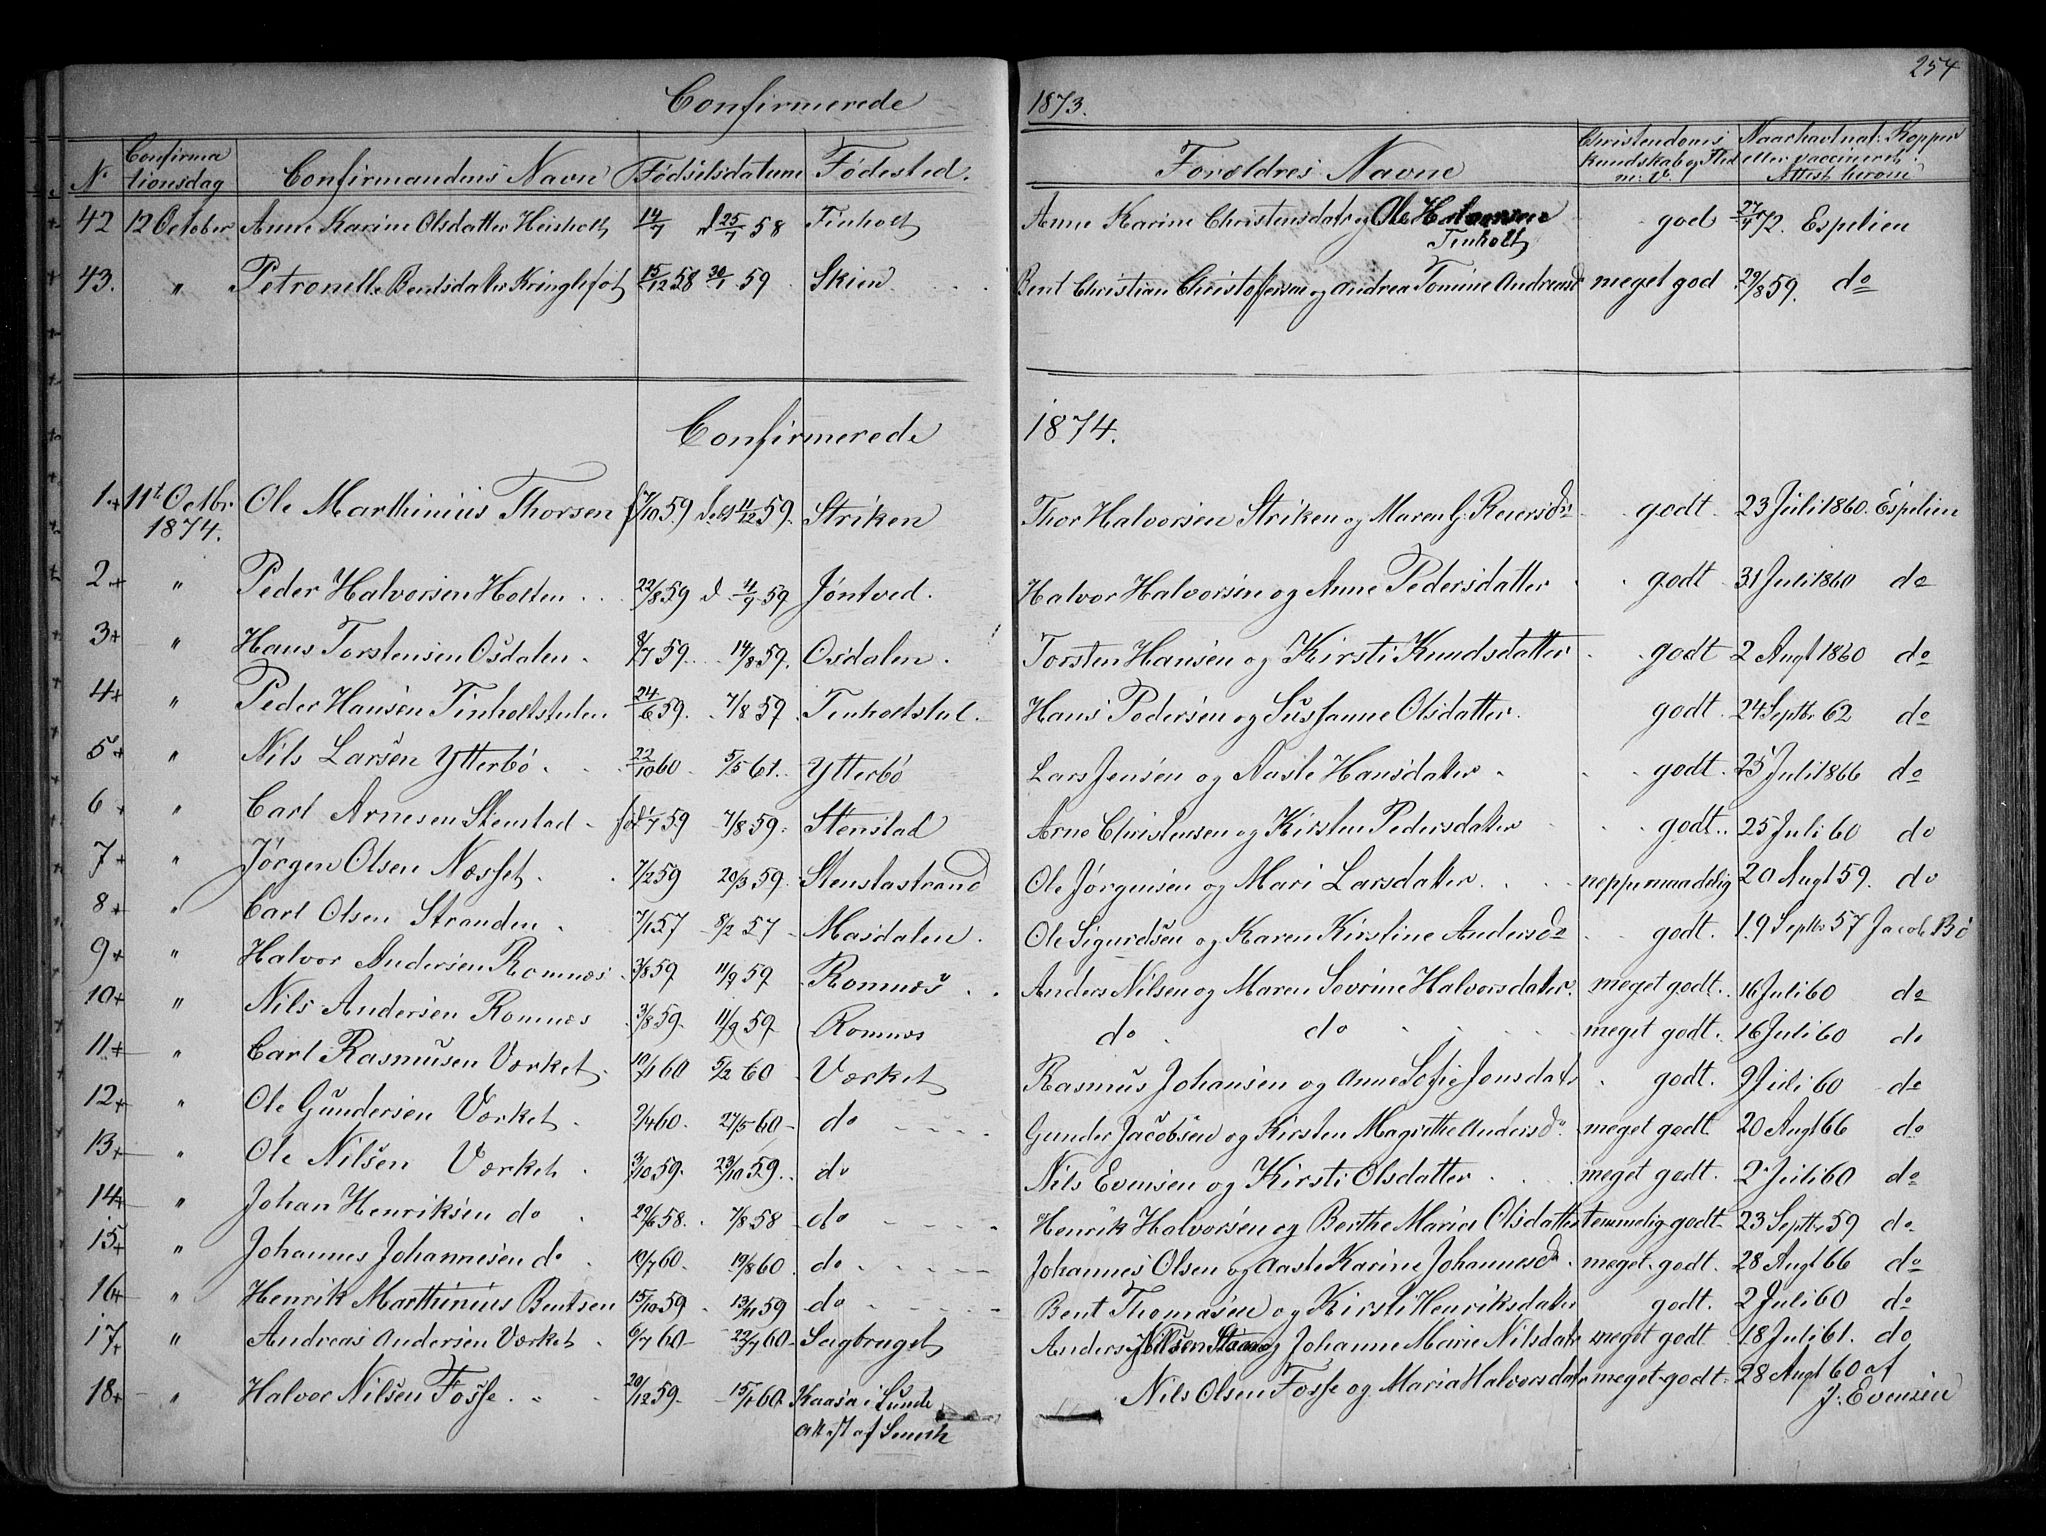 254
Confirmerede 1873.
N Confirmationsdag Confirmandens Navn Fødselsdatum Fødested. Forældres Navne Christendoms kundskab og Flid m: V. Naar havt nat: Kopper eller vaccineret. Attest herom
42 12 October Anne Karine Olsdatter Heisholt 14/7 d 25/7 58 Tinholt Anne Karine Christensdatr og Ole Halvorsen Tinholt god 27/9 72. Espelien
43. " Petronelle Bentsdatter Kringlefot 15/12 58 30/1 59 Skien Bent Christian Christoffersen og Andrea Tomine Andreasd meget god 29/8 59. do
Confirmerede 1874.
1 11t Octbr 1874. Ole Marthinius Thorsen f 7/10 59 11/12 59. Striken Thor Halvorsen Striken og Maren G. Reiersdr godt. 23 Juli 1860. Espelien
2 " Peder Halvorsen Holten 22/8 59 d 4/9 59 Jøntved. Halvor Halvorsen og Anne Pedersdatter godt 31 Juli 1860 do
3 " Hans Torstensen Osdalen 8/7 59. 14/8 59. Osdalen. Torsten Hansen og Kirsti Knudsdatter godt 2 Augt 1860 do
4 " Peder Hansen Tinholtstulen 24/6 59. 7/8 59. Tinholtstul. Hans Pedersen og Sussanne Olsdatter. godt. 24 Septbr 62 do
5 " Nils Larsen Ytterbö 22/10 60 5/5 61. Ytterbö Lars Jensen og Aaste Hansdatter godt. 25 Juli 1866 do
6 " Carl Arnesen Stenstad fød 1/7 59 7/8 59. Stenstad Arne Christensen og Kirsten Pedersdatter godt. 25 Juli 60 do
7 " Jørgen Olsen Næsset 7/2 59 20/3 59. Stenstastrand Ole Jørgensen og Mari Larsdatter neppe maadelig 20 Augt 59. do
8 " Carl Olsen Stranden 7/1 57 8/2 57 Masdalen. Ole Sigurdsen og Karen Kirstine Andersd godt. 19 Septbr 57 Jacob Bö
9 " Halvor Andersen Romnæs 3/8 59 11/9 59 Romnæs Anders Nilsen og Maren Sevrine Halvorsdatter. meget godt. 16 Juli 60 do
10 " Nils Andersen Romnæs 3/8 59. 11/9 59 Romnæs do do meget godt. 16 Juli 60 do
11 " Carl Rasmusen Værket. 10/1 60 5/2 60 Værket Rasmus Johansen og Anne Sofie Jonsdatr godt. 9 Juli 60 do
12 " Ole Gundersen Værket. 9/4 60. 27/5 60 do Gunder Jacobsen og Kirsten Magrethe Andersd. meget godt 20 Augt 66 do
13 " Ole Nilsen Værket 3/10 59. 23/10 59. do Nils Evensen og Kirsti Olsdatter meget godt. 2 Juli 60 do
14 " Johan Henriksen do 29/6 58. 7/8 58 do Henrik Halvorsen og Berthe Maria Olsdatter temmelig godt 23 Septbr 59 do
15 " Johannes Johannesen do 10/7 60. 19/8 60. do Johannes Olsen og Aaste Karine Johannesd. meget godt. 28 Augt 66 do
16 " Henrik Marthinius Bentsen 15/10 59 13/11 59 do Bent Thomasen og Kirsti Henriksdatter godt. 2 Juli 60 do
17 " Andreas Andersen Værket 6/7 60 22/7 60 Sagbruget Anders Nilsen og Johanne Marie Nilsdatr meget godt 18 Juli 61. do
18 " Halvor Nilsen Fosse. 20/12 59 15/1 60 Kaasa i Lunde Nils Olsen Fosse og Maria Halvorsdatr meget godt. 28 Augt 60 af
att. af J. Evensen